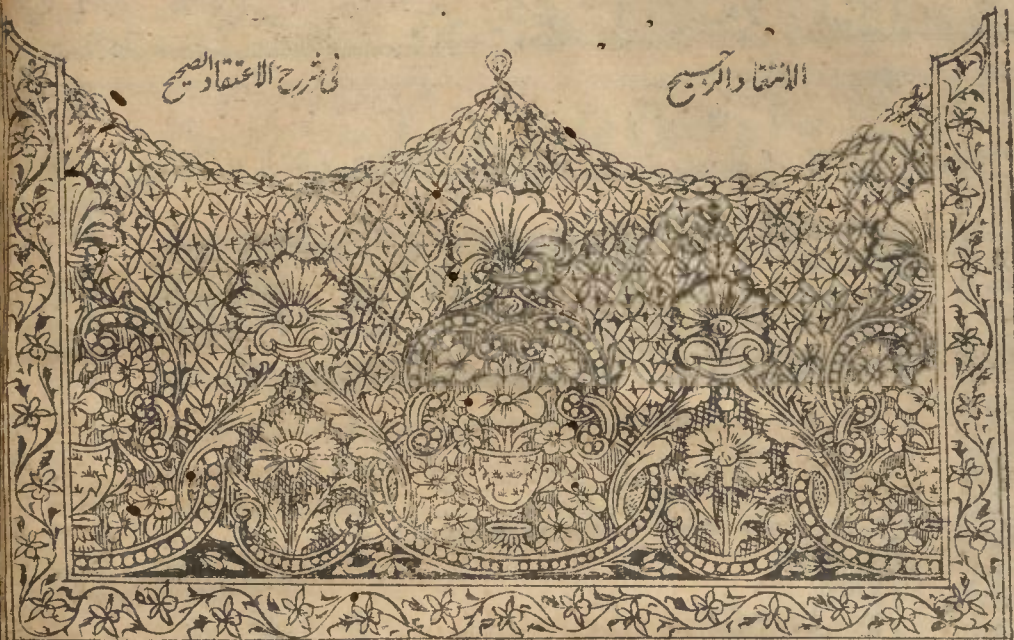 الانتقاد الرجيح في شرح الاعتقاد الصحيح